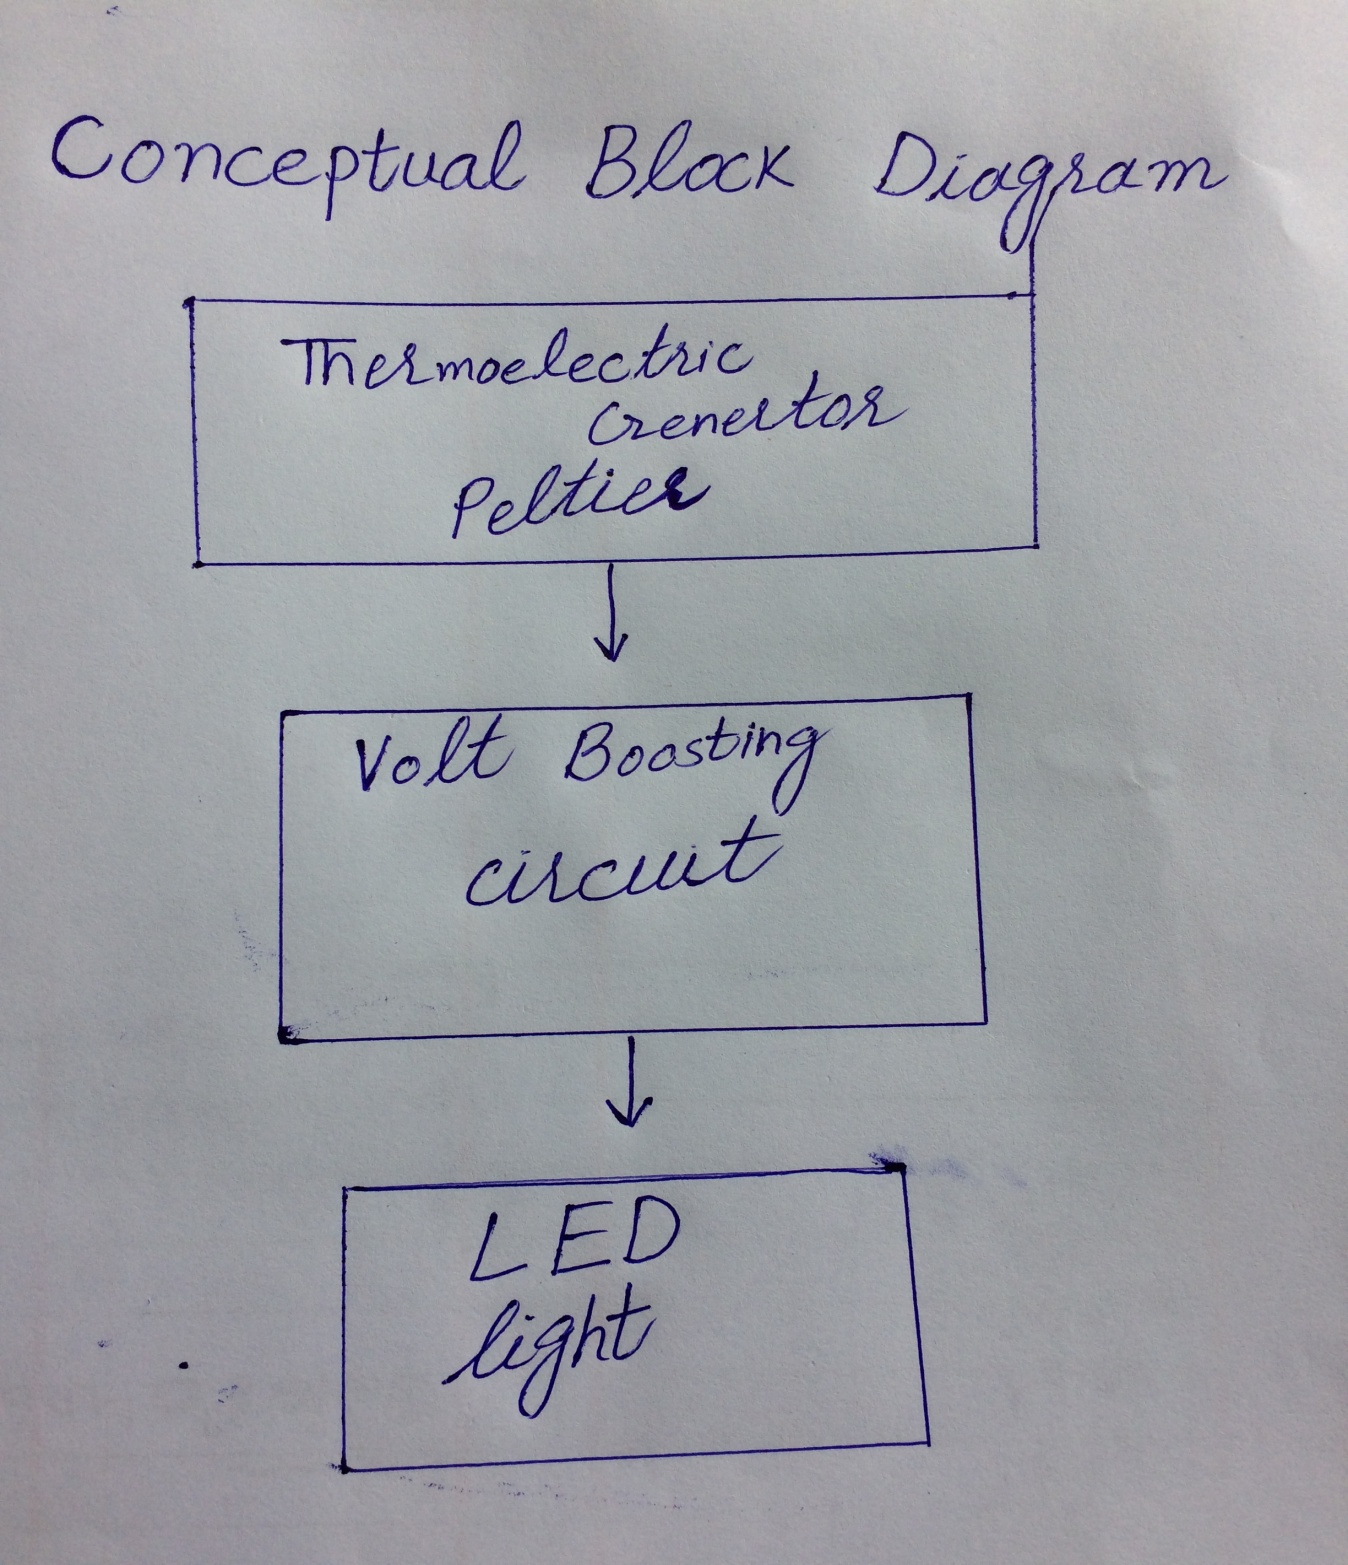 Conceptual Block Diagram
Thermoelectric
Genertor
Peltier
Volt Boosting
circuit
LED
light